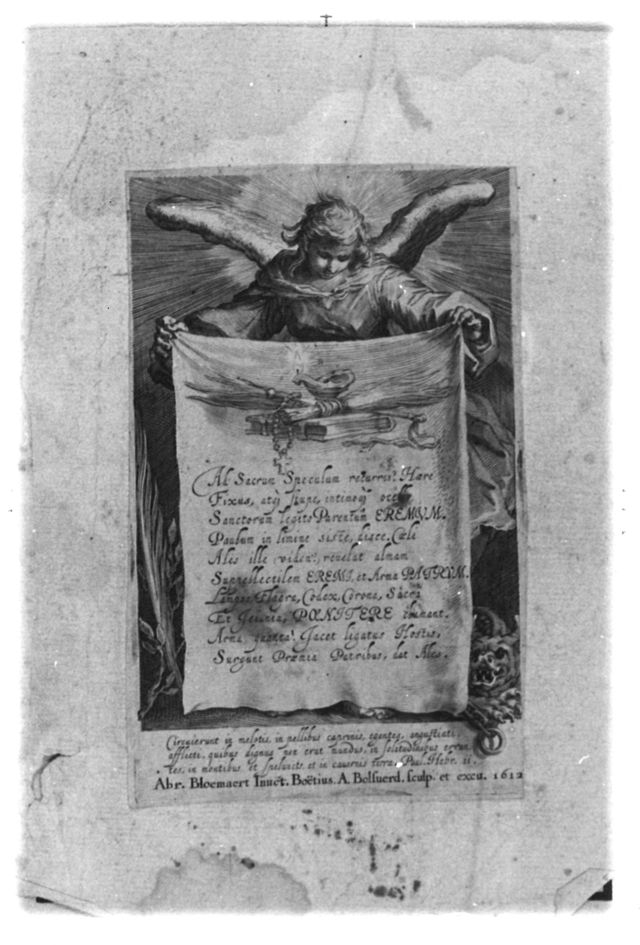 Ad Sacrum Speculum recurris? Hære
Fixus, atq3 stupe, intimoq3
Sanctorum legito Parentum EREMVM.
Paulum in limine siste, disce. Cœli
Ales ille, viden?, revelat almam
Suppellectilem EREMI, et Arma PATRVM.
Flagra, Codex, Corona, Sacra
Et Jejunia, PŒNITERE clamant.
Arma quanta! Jacet ligatus Hostis,
Surgunt Præmia Patribus, dat Ales.
Circuierunt in melotis, in pellibus caprinis, egentes, angustiati,
afflicti, quibus dignus non erat mundus, in solitudinibus erran
tes, in montibus et speluncis, et in cavernis terræ. Paul. Hebr. 11.
Abr. Bloemaert Inuēt. Boëtius. A. Bolsuerd. sculp. et excu. 1612